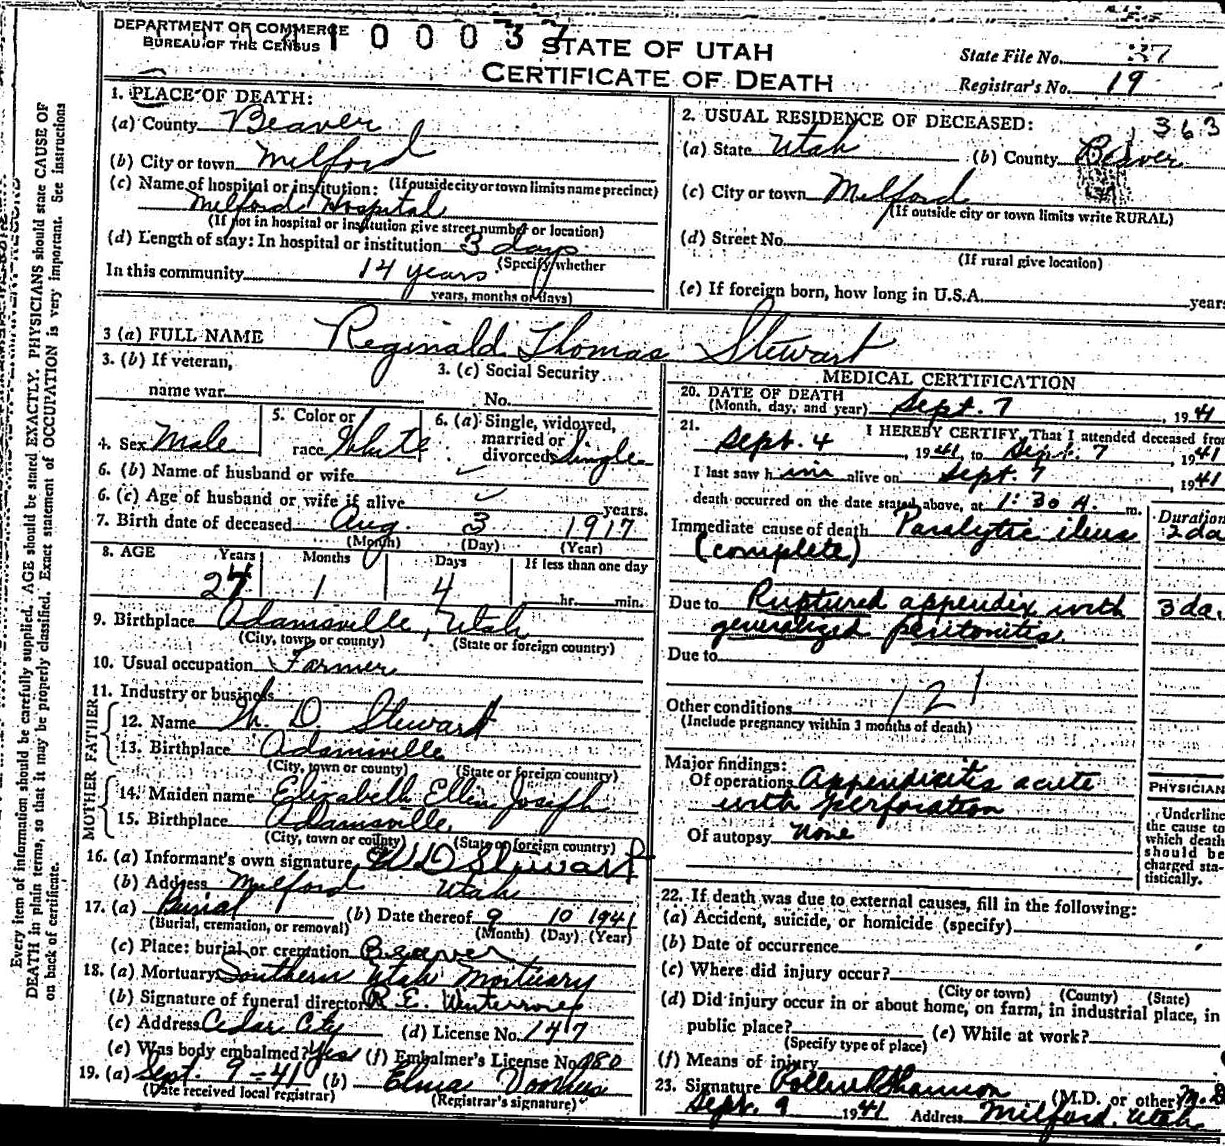 DEPARTMENT OF COMMERCE
BUREAU OF THE CENSUS
1 0 0 0 3 7
STATE OF UTAH
CERTIFICATE OF DEATH
State File No. 37
Registrar's No. 19
1. PLACE OF DEATH:
(a) County Beaver
(b) City or town Milford
(c) Name of hospital or institution: (If outside city or town limits name precinct)
Milford Hospital
(If not in hospital or institution give street number or location)
(d) Length of stay: In hospital or institution 3 days
(Specify whether
In this community 14 years
years, months or days)
2. USUAL RESIDENCE OF DECEASED:
1 363
(a) State Utah (b) County Beaver
(c) City or town Milford
(If outside city or town limits write RURAL)
(d) Street No.
(If rural give location)
(e) If foreign born, how long in U.S.A. years
3 (a) FULL NAME Reginald Thomas Stewart
3. (b) If veteran,
name war
3. (c) Social Security
No.
4. Sex Male
5. Color or
race White
6. (a) Single, widowed,
married or
divorced Single
6. (b) Name of husband or wife
6. (c) Age of husband or wife if alive years.
7. Birth date of deceased Aug. 3 1917
(Month) (Day) (Year)
8. AGE Years Months Days If less than one day
27 1 4 hr. min.
9. Birthplace Adamsville, Utah
(City, town, or county) (State or foreign country)
10. Usual occupation Farmer
11. Industry or business
FATHER
12. Name W. D Stewart
13. Birthplace Adamsville
(City, town or county) (State or foreign country)
MOTHER
14. Maiden name Elizabeth Ellen Joseph
15. Birthplace Adamsville
(City, town or county) (State or foreign country)
16. (a) Informant's own signature W D Stewart
(b) Address Milford Utah
17. (a) Burial (b) Date thereof 9 10 1941
(Burial, cremation, or removal) (Month) (Day) (Year)
(c) Place: burial or cremation Beaver
18. (a) Mortuary Southern Utah Mortuary
(b) Signature of funeral director R. E.
(c) Address Cedar City (d) License No. 147
(e) Was body embalmed? Yes (f) Embalmer's License No. 980
19. (a) Sept. 9-41 (b) Elma
(Date received local registrar) (Registrar's signature)
MEDICAL CERTIFICATION
20. DATE OF DEATH
(Month, day, and year) Sept. 7, 1941
21. I HEREBY CERTIFY, That I attended deceased from
Sept. 4, 1941, to Sept. 7, 1941
I last saw him alive on Sept. 7 1941
death occurred on the date stated above, at 1:30 A. m.
Duration
Immediate cause of death Paralytic ileus 2 da
(complete)
Due to Ruptured appendix with 3 da.
generalized peritonitis.
Due to
121
Other conditions
(Include pregnancy within 3 months of death)
Major findings:
Of operations Appendicitis acute
with perforation
Of autopsy none
PHYSICIAN
Underline
the cause to
which death
should be
charged sta-
tistically.
22. If death was due to external causes, fill in the following:
(a) Accident, suicide, or homicide (specify)
(b) Date of occurrence
(c) Where did injury occur?
(City or town) (County) (State)
(d) Did injury occur in or about home, on farm, in industrial place, in
public place? (e) While at work?
(Specify type of place)
(f) Means of injury
23. Signature Shannon (M.D. or other) M.D
Sept. 9 1941 Address Milford, Utah
Every item of information should be carefully supplied. AGE should be stated EXACTLY. PHYSICIANS should state CAUSE OF
DEATH in plain terms, so that it may be properly classified. Exact statement of OCCUPATION is very important. See instructions
on back of certificate.